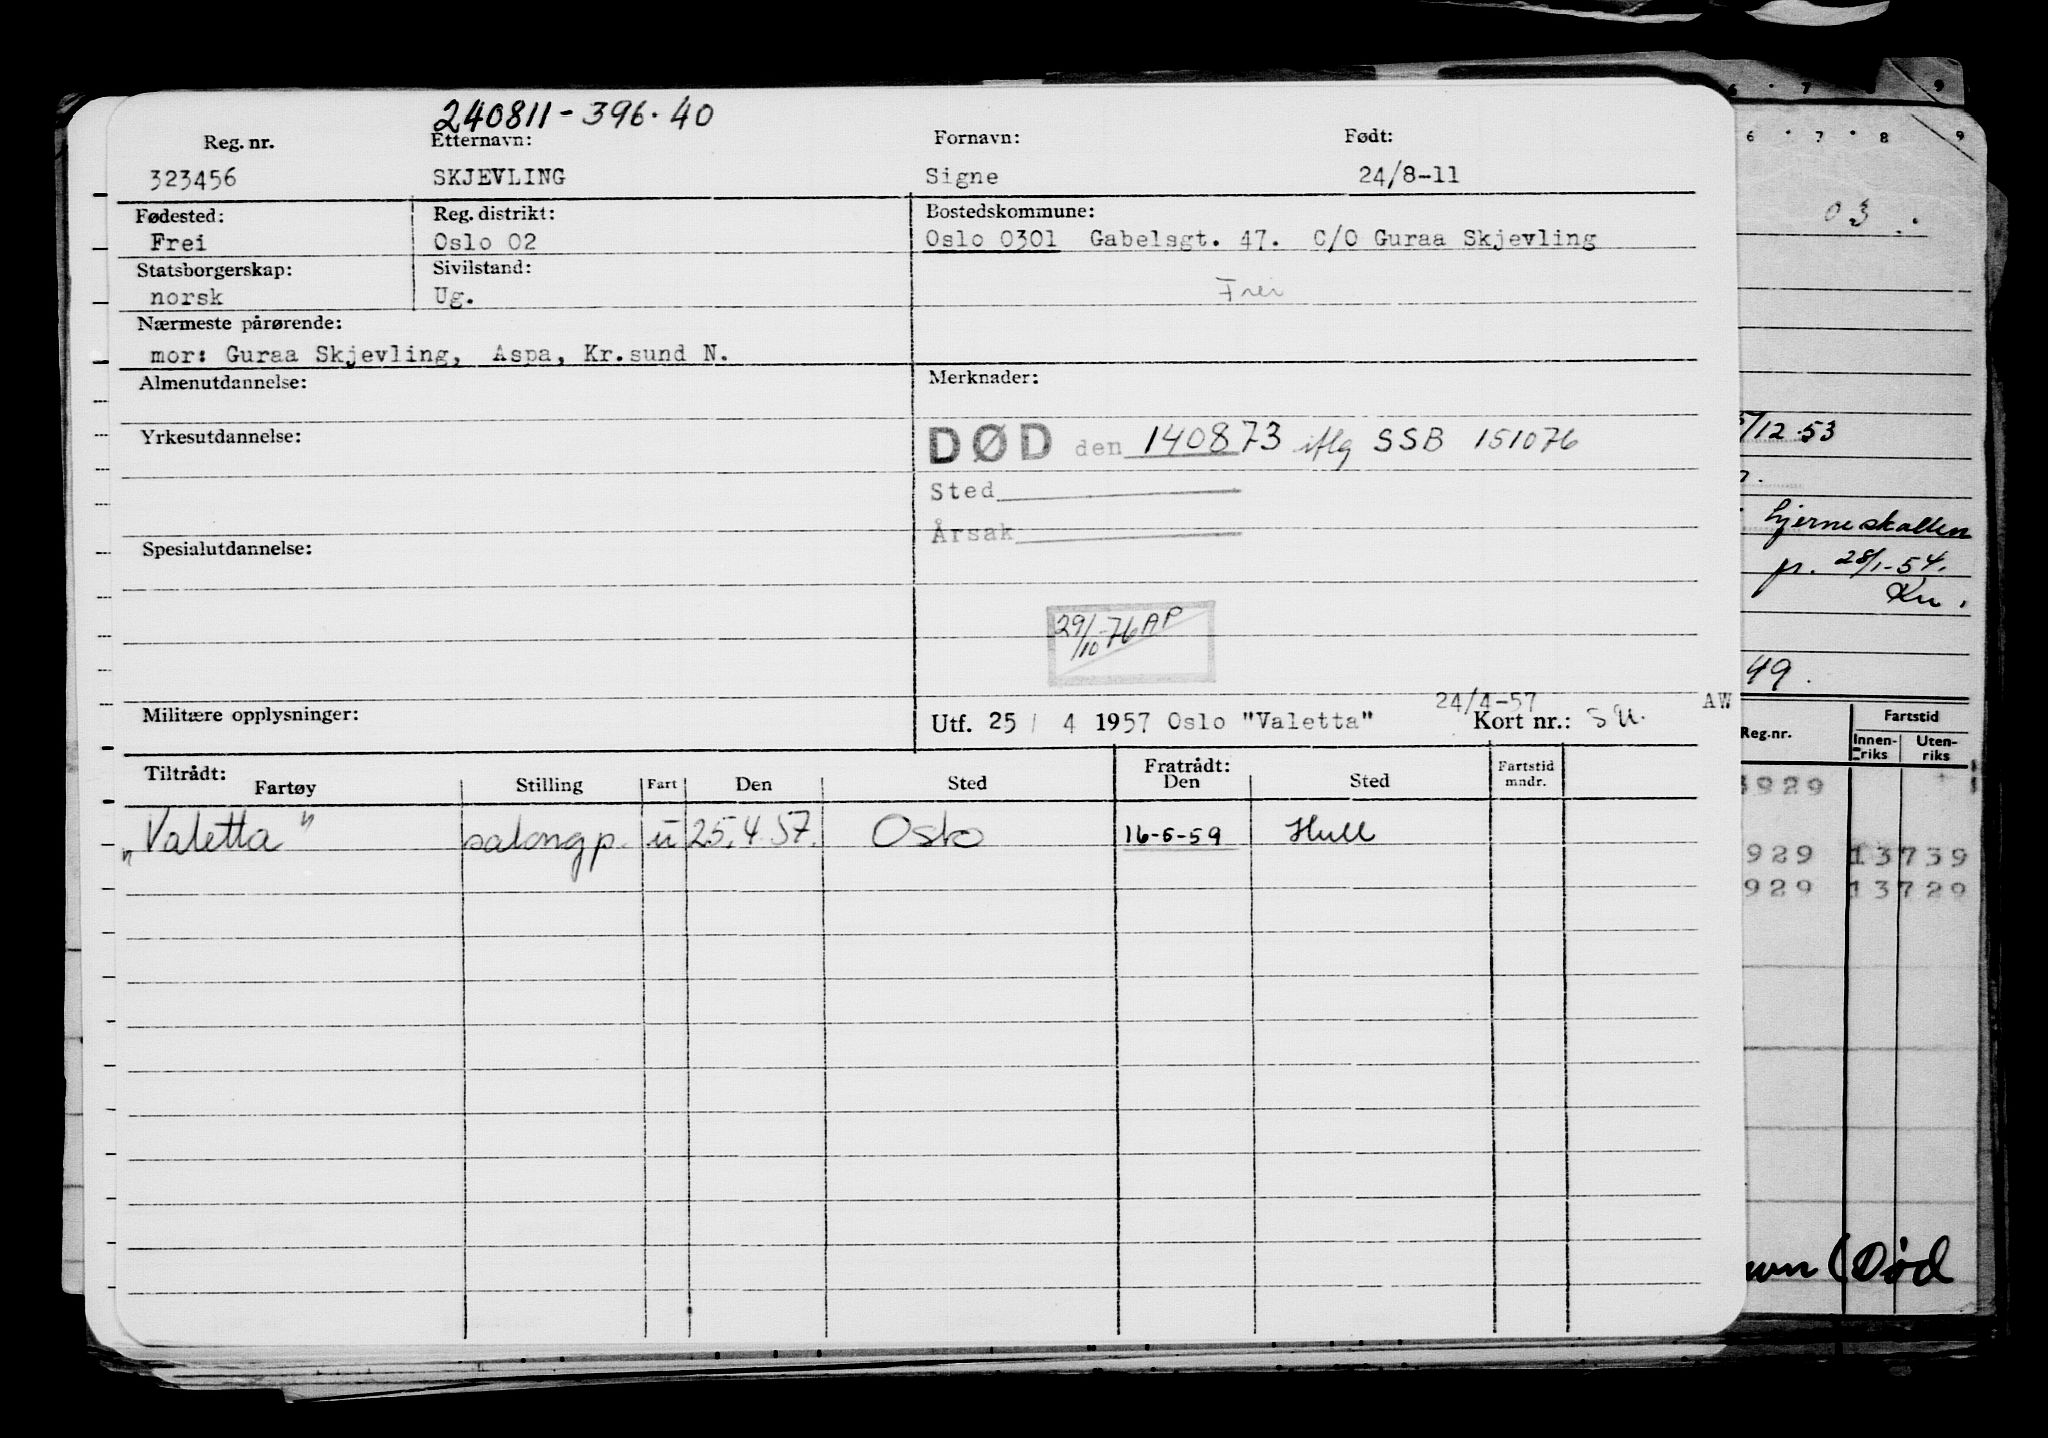 240811-396.40
Reg. nr. Etternavn: Fornavn: Født:
323456 SKJEVLING Signe 24/8-11
Fødested: Reg. distrikt: Bostedskommune:
Frei Oslo 02 Oslo 0301 Gabelsgt. 47. C/O Guraa Skjevling
Statsborgerskap: Sivilstand:
norsk Ug. Frei
Nærmeste pårørende:
mor: Guraa Skjevling, Aspa, Kr.sund N.
Almenutdannelse: Merknader:
Yrkesutdannelse: DØD den 140873 iflg SSB 151076
Sted
Årsak
Spesialutdannelse:
29/10-76 AP
24/4-57 AW
Militære opplysninger: Utf. 25 / 4 1957 Oslo "Valetta" Kort nr.:
Tiltrådt: Fratrådt: Fartstid
Fartøy Stilling Fart Den Sted Den Sted mndr.
"Valetta" salongp. u 25.4.57. Oslo 16-5-59 Hull
6 7 8 9
6 7 8 9
03
/12.53
hjerneskallen
pr. 28/1-54.
Kn.
49.
Reg.nr. Fartstid
Innenriks Utenriks
929
929 13739
929 13729
(Død